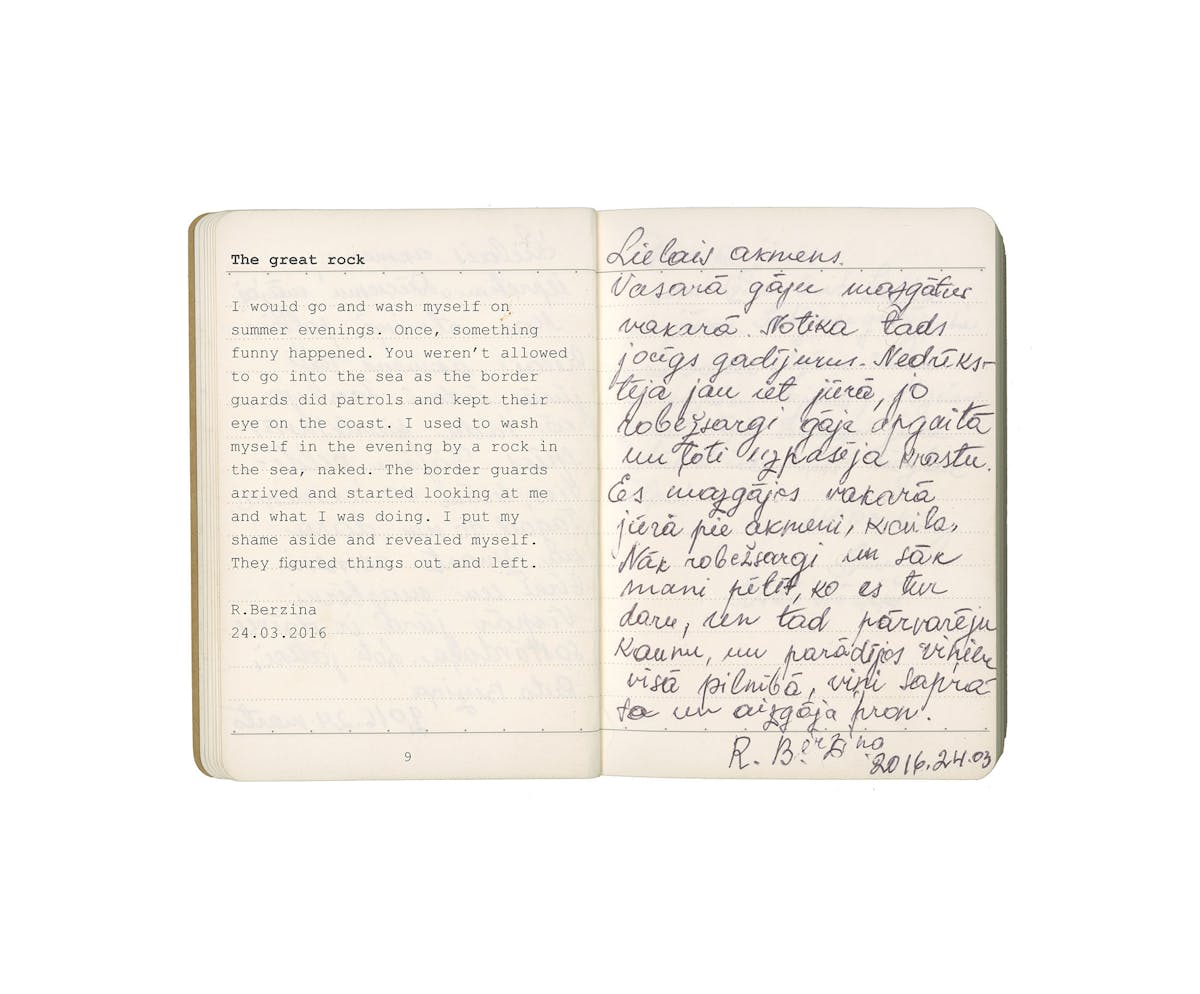 The great rock
I would go and wash myself on
summer evenings. Once, something
funny happened. You weren't allowed
to go into the sea as the border
guards did patrols and kept their
eye on the coast. I used to wash
myself in the evening by a rock in
the sea, naked. The border guards
arrived and started looking at me
and what I was doing. I put my
shame aside and revealed myself.
They figured things out and left.
R.Berzina
24.03.2016
9
Lielais akmens.
Vasarā gāju mazgāties
vakarā. Notika tāds
jocīgs gadījums. Nedrīks-
tēja jau iet jūrā, jo
robežsargi gāja apgaitā
un ļoti uzpasēja krastu.
Es mazgājos vakarā
jūrā pie akmeņi,
Nāk robežsargi un sāk
mani pētīt, ko es tur
daru, un tad pārvarēju
kaunu, un parādījos viņiem
visā pilnībā, viņi saprā
ta un aizgāja prom.
R. Bērziņa
2016.24.03